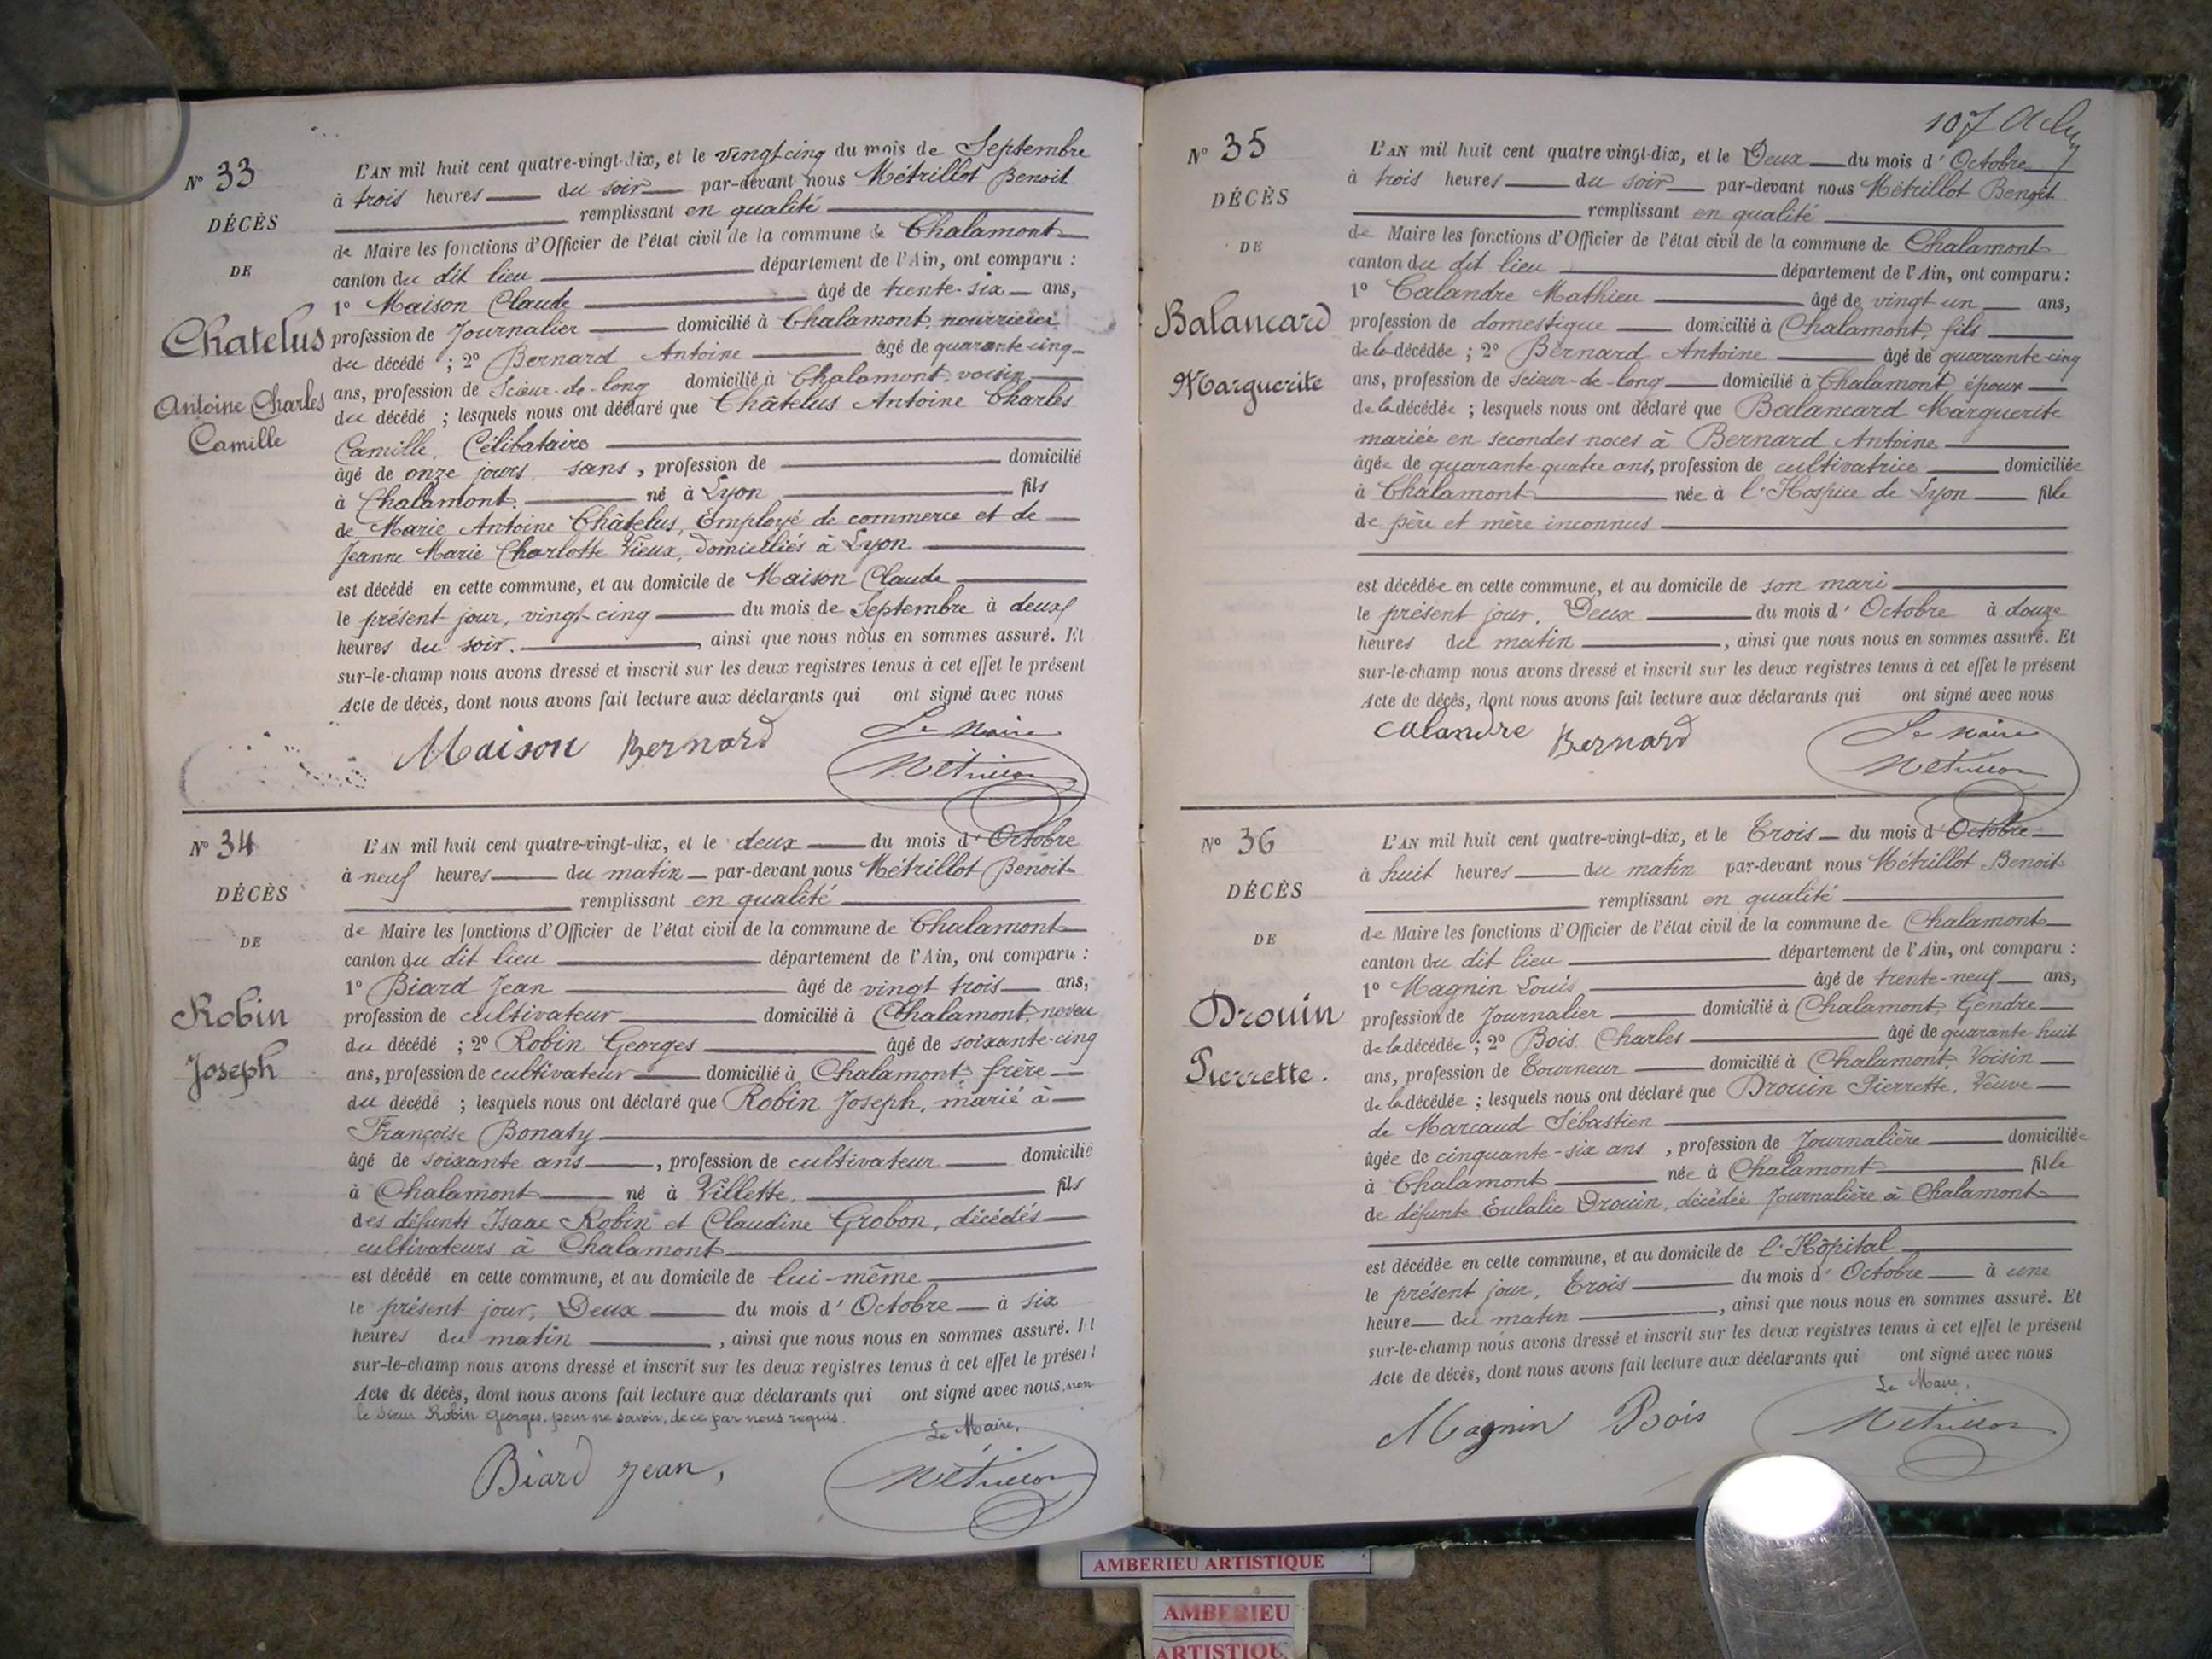 N° 33
DÉCÈS
DE
Chatelus
Antoine Charles
Camille
L'AN mil huit cent quatre-vingt-dix, et le vingt cinq du mois de Septembre
à trois heures du soir par-devant nous Métrillot Benoit
remplissant en qualité
de Maire les fonctions d'Officier de l'état civil de la commune de Chalamont
canton du dit lieu département de l'Ain, ont comparu :
1° Maison Claude âgé de trente-six ans,
profession de Journalier domicilié à Chalamont, nourricier
du décédé ; 2° Bernard Antoine âgé de quarante cinq
ans, profession de Scieur-de-long domicilié à Chalamont, voisin
du décédé ; lesquels nous ont déclaré que Châtelus Antoine Charles
Camille, Célibataire
âgé de onze jours sans, profession de domicilié
à Chalamont né à Lyon fils
de Marie Antoine Châtelus, Employé de commerce et de
Jeanne Marie Charlotte Vieux, domiciliés à Lyon
est décédé en cette commune, et au domicile de Maison Claude
le présent jour, vingt-cinq du mois de Septembre à deux
heures du soir. , ainsi que nous nous en sommes assuré. Et
sur-le-champ nous avons dressé et inscrit sur les deux registres tenus à cet effet le présent
Acte de décès, dont nous avons fait lecture aux déclarants qui ont signé avec nous
Maison Bernard
Le Maire
Métrillot
N° 34
DÉCÈS
DE
Robin
Joseph
L'AN mil huit cent quatre-vingt-dix, et le deux du mois d'Octobre
à neuf heures du matin par-devant nous Métrillot Benoit
remplissant en qualité
de Maire les fonctions d'Officier de l'état civil de la commune de Chalamont
canton du dit lieu département de l'Ain, ont comparu :
1° Biard Jean âgé de vingt trois ans,
profession de cultivateur domicilié à Chalamont, neveu
du décédé ; 2° Robin Georges âgé de soixante-cinq
ans, profession de cultivateur domicilié à Chalamont, frère
du décédé ; lesquels nous ont déclaré que Robin Joseph, marié à
Françoise Bonaty
âgé de soixante ans , profession de cultivateur domicilié
à Chalamont né à Villette, fils
des défunts Isaac Robin et Claudine Grobon, décédés
cultivateurs à Chalamont
est décédé en cette commune, et au domicile de lui-même
le présent jour, Deux du mois d'Octobre à six
heures du matin , ainsi que nous nous en sommes assuré. Et
sur-le-champ nous avons dressé et inscrit sur les deux registres tenus à cet effet le présent
Acte de décès, dont nous avons fait lecture aux déclarants qui ont signé avec nous, non
le Sieur Robin Georges, pour ne savoir, de ce par nous requis.
Le Maire,
Biard Jean,
Métrillot
107
N° 35
DÉCÈS
DE
Balancard
Marguerite
L'AN mil huit cent quatre vingt-dix, et le Deux du mois d'Octobre
à trois heures du soir par-devant nous Métrillot Benoit
remplissant en qualité
de Maire les fonctions d'Officier de l'état civil de la commune de Chalamont
canton du dit lieu département de l'Ain, ont comparu :
1° Calandre Mathieu âgé de vingt un ans,
profession de domestique domicilié à Chalamont, fils
de la décédée ; 2° Bernard Antoine âgé de quarante-cinq
ans, profession de Scieur-de-long domicilié à Chalamont, époux
de la décédée ; lesquels nous ont déclaré que Balancard Marguerite
mariée en secondes noces à Bernard Antoine
âgée de quarante-quatre ans, profession de cultivatrice domiciliée
à Chalamont née à l'Hospice de Lyon fille
de père et mère inconnus
est décédée en cette commune, et au domicile de son mari
le présent jour, Deux du mois d'Octobre à douze
heures du matin , ainsi que nous nous en sommes assuré. Et
sur-le-champ nous avons dressé et inscrit sur les deux registres tenus à cet effet le présent
Acte de décès, dont nous avons fait lecture aux déclarants qui ont signé avec nous
Calandre Bernard
Le Maire
Métrillot
N° 36
DÉCÈS
DE
Drouin
Pierrette.
L'AN mil huit cent quatre-vingt-dix, et le Trois du mois d'Octobre
à huit heures du matin par-devant nous Métrillot Benoit
remplissant en qualité
de Maire les fonctions d'Officier de l'état civil de la commune de Chalamont
canton du dit lieu département de l'Ain, ont comparu :
1° Magnin Louis âgé de trente-neuf ans,
profession de Journalier domicilié à Chalamont, Gendre
de la décédée ; 2° Bois Charles âgé de quarante-huit
ans, profession de Tourneur domicilié à Chalamont, Voisin
de la décédée ; lesquels nous ont déclaré que Drouin Pierrette, Veuve
de Marcaud Sébastien
âgée de cinquante-six ans , profession de Journalière domiciliée
à Chalamont née à Chalamont fille
de défunte Eulalie Drouin, décédée Journalière à Chalamont
est décédée en cette commune, et au domicile de l'Hôpital
le présent jour, Trois du mois d'Octobre à une
heure du matin , ainsi que nous nous en sommes assuré. Et
sur-le-champ nous avons dressé et inscrit sur les deux registres tenus à cet effet le présent
Acte de décès, dont nous avons fait lecture aux déclarants qui ont signé avec nous
Le Maire,
Magnin Bois
Métrillot
AMBERIEU ARTISTIQUE
AMBERIEU
ARTISTIQU